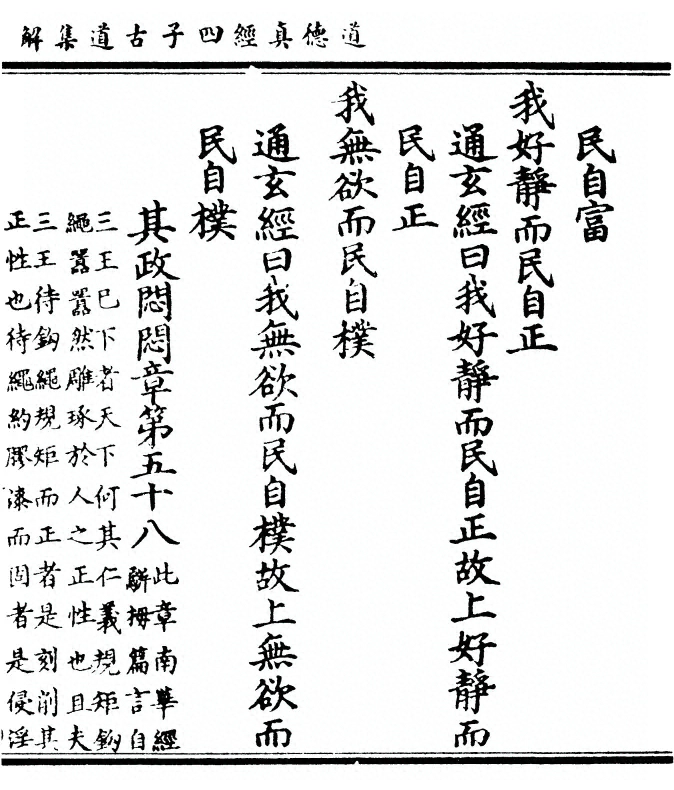 道德真經四子古道集解
民自富
我好靜而民自正
通玄經曰我好靜而民自正故上好靜而
民自正
我無欲而民自樸
通玄經曰我無欲而民自樸故上無欲而
民自樸
其政悶悶章第五十八
此章南華經
駢拇篇言自
三王巳下者天下何其仁義規矩鈎
繩囂囂然雕琢於人之正性也且夫
三王待鈎繩規矩而正者是刻削其
正性也待繩約膠漆而固者是侵淫